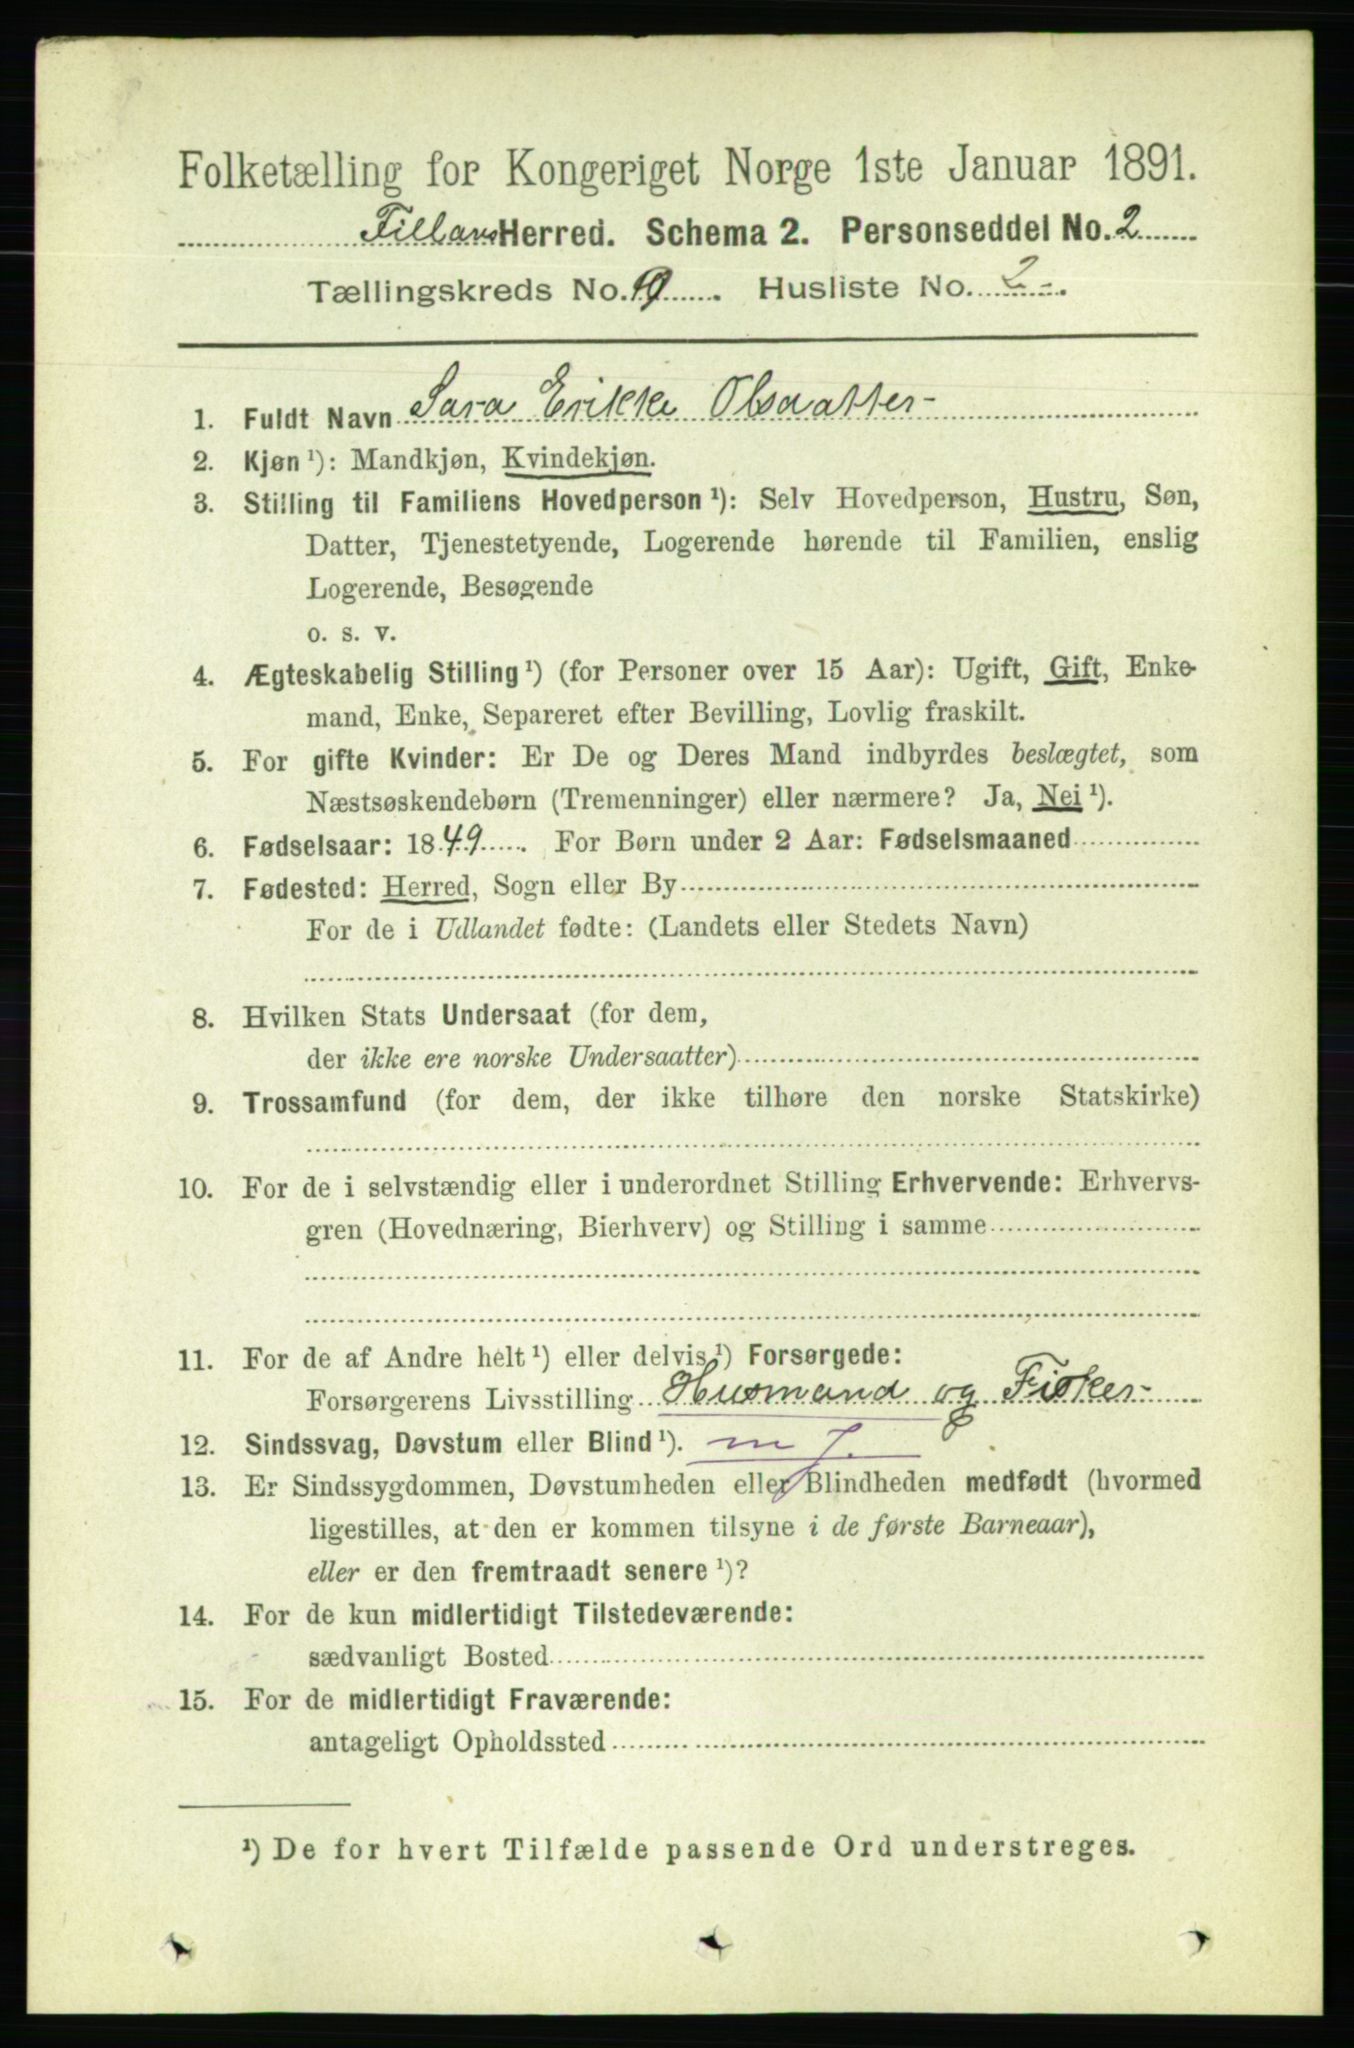 Folketælling for Kongeriget Norge 1ste Januar 1891.
Fillans Herred. Schema 2. Personseddel No. 2
Tællingskreds No. 10. Husliste No. 2.
1. Fuldt Navn Sara Erikke Olsdatter
2. Kjøn ¹): Mandkjøn, Kvindekjøn.
3. Stilling til Familiens Hovedperson ¹): Selv Hovedperson, Hustru, Søn,
Datter, Tjenestetyende, Logerende hørende til Familien, enslig
Logerende, Besøgende
o. s. v.
4. Ægteskabelig Stilling ¹) (for Personer over 15 Aar): Ugift, Gift, Enke-
mand, Enke, Separeret efter Bevilling, Lovlig fraskilt.
5. For gifte Kvinder: Er De og Deres Mand indbyrdes beslægtet, som
Næstsøskendebørn (Tremenninger) eller nærmere? Ja, Nei ¹).
6. Fødselsaar: 1849. For Børn under 2 Aar: Fødselsmaaned
7. Fødested: Herred, Sogn eller By
For de i Udlandet fødte: (Landets eller Stedets Navn)
8. Hvilken Stats Undersaat (for dem,
der ikke ere norske Undersaatter)
9. Trossamfund (for dem, der ikke tilhøre den norske Statskirke)
10. For de i selvstændig eller i underordnet Stilling Erhvervende: Erhvervs-
gren (Hovednæring, Bierhverv) og Stilling i samme
11. For de af Andre helt ¹) eller delvis ¹) Forsørgede:
Forsørgerens Livsstilling Husmand og Fisker
12. Sindssvag, Døvstum eller Blind ¹). m f.
13. Er Sindssygdommen, Døvstumheden eller Blindheden medfødt (hvormed
ligestilles, at den er kommen tilsyne i de første Barneaar),
eller er den fremtraadt senere ¹)?
14. For de kun midlertidigt Tilstedeværende:
sædvanligt Bosted
15. For de midlertidigt Fraværende:
antageligt Opholdssted
¹) De for hvert Tilfælde passende Ord understreges.